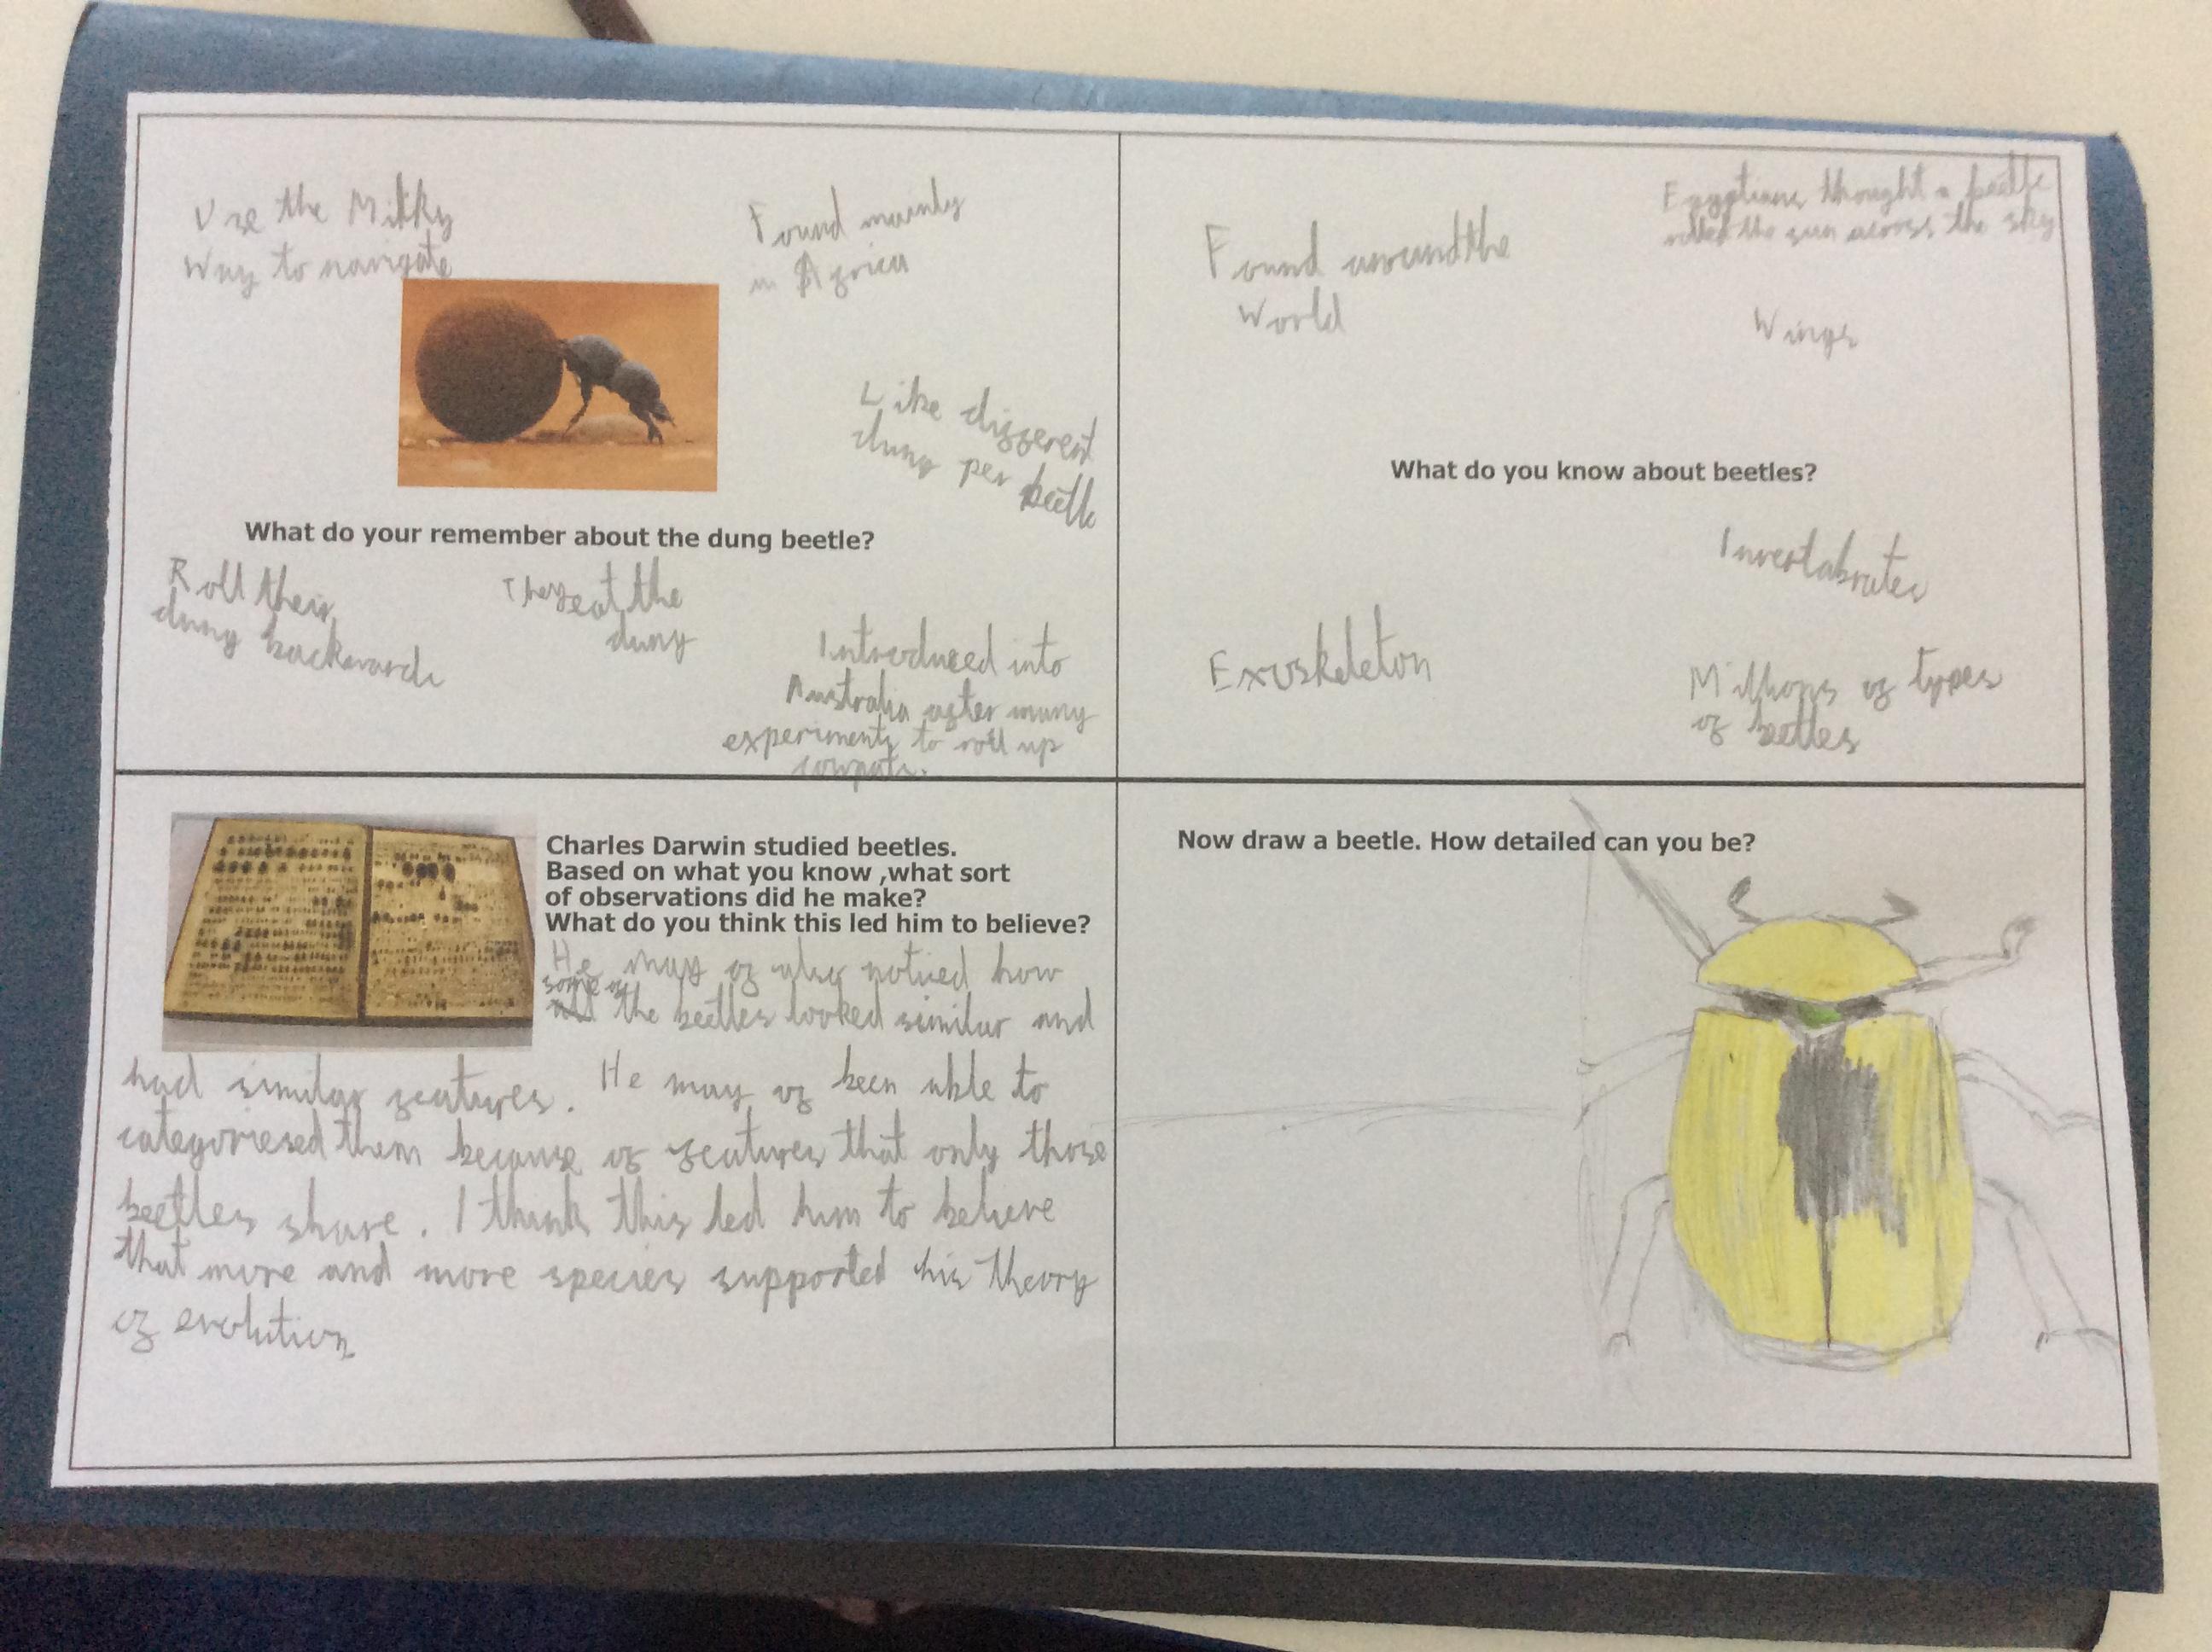 Use the Milky
Way to navigate
Found mainly
in Africa
Like different
dung per beetle
What do your remember about the dung beetle?
Roll their
dung backwards
They eat the
dung
Introduced into
Australia after many
experiments to roll up
cowpats.
Found around the
World
Egyptians thought a beetle
rolled the sun across the sky
Wings
What do you know about beetles?
Invertabrates
Exoskeleton
Millions of types
of beetles
Charles Darwin studied beetles.
Based on what you know ,what sort
of observations did he make?
What do you think this led him to believe?
He may of also noticed how
some of
the beetles looked similar and
had similar features. He may of been able to
categoriesed them because of features that only those
beetles share. I think this led him to believe
that more and more species supported his theory
of evolution
Now draw a beetle. How detailed can you be?